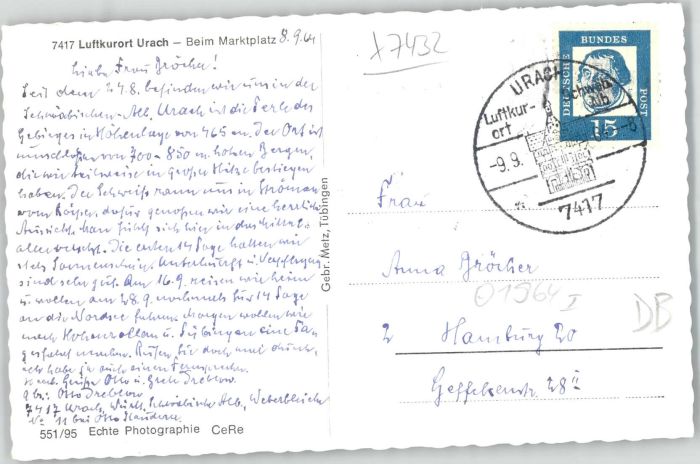 7417 Luftkurort Urach – Beim Marktplatz 8.9.64
Liebe Frau Gröcher!
Seit dem 24.8. befinden wir uns in der
Schwäbischen-Alb. Urach ist die Perle des
Gebirges in Höhenlage von 465 m. Der Ort ist
umschlossen von 700-850 m hohen Bergen,
die wir teilweise in großer Hitze bestiegen
haben. Der Schweiß rann uns in Strömen
vom Körper, dafür genossen wir eine herrliche
Aussicht. Man fühlt sich hier in das
Die ersten 14 Tage hatten wir
stets Sonnenschein. Unterkunft u. Verpflegung
sind sehr gut. Am 16.9. reisen wir heim
u. wollen am 28.9. nochmals für 14 Tage
an die Nordsee fahren. Morgen wollen wir
nach Hohenzollern u. Tübingen eine
machen. Rufen Sie doch mal
ich habe ja auch einen Fernsprecher.
Grüße Otto u. Grete Dreblow
Otto Dreblow
7417 Urach, Württ. Schwäbische Alb,
Nr. 11 bei Otto
551/95 Echte Photographie CeRe
Gebr. Metz, Tübingen
x7432
DEUTSCHE BUNDESPOST
15
URACH
Luftkur-
ort
Schwäb.
Alb
-9.9.
7417
Frau
Anna Gröcher
01964 I
DB
2 Hamburg 20
Geffckenstr. 28